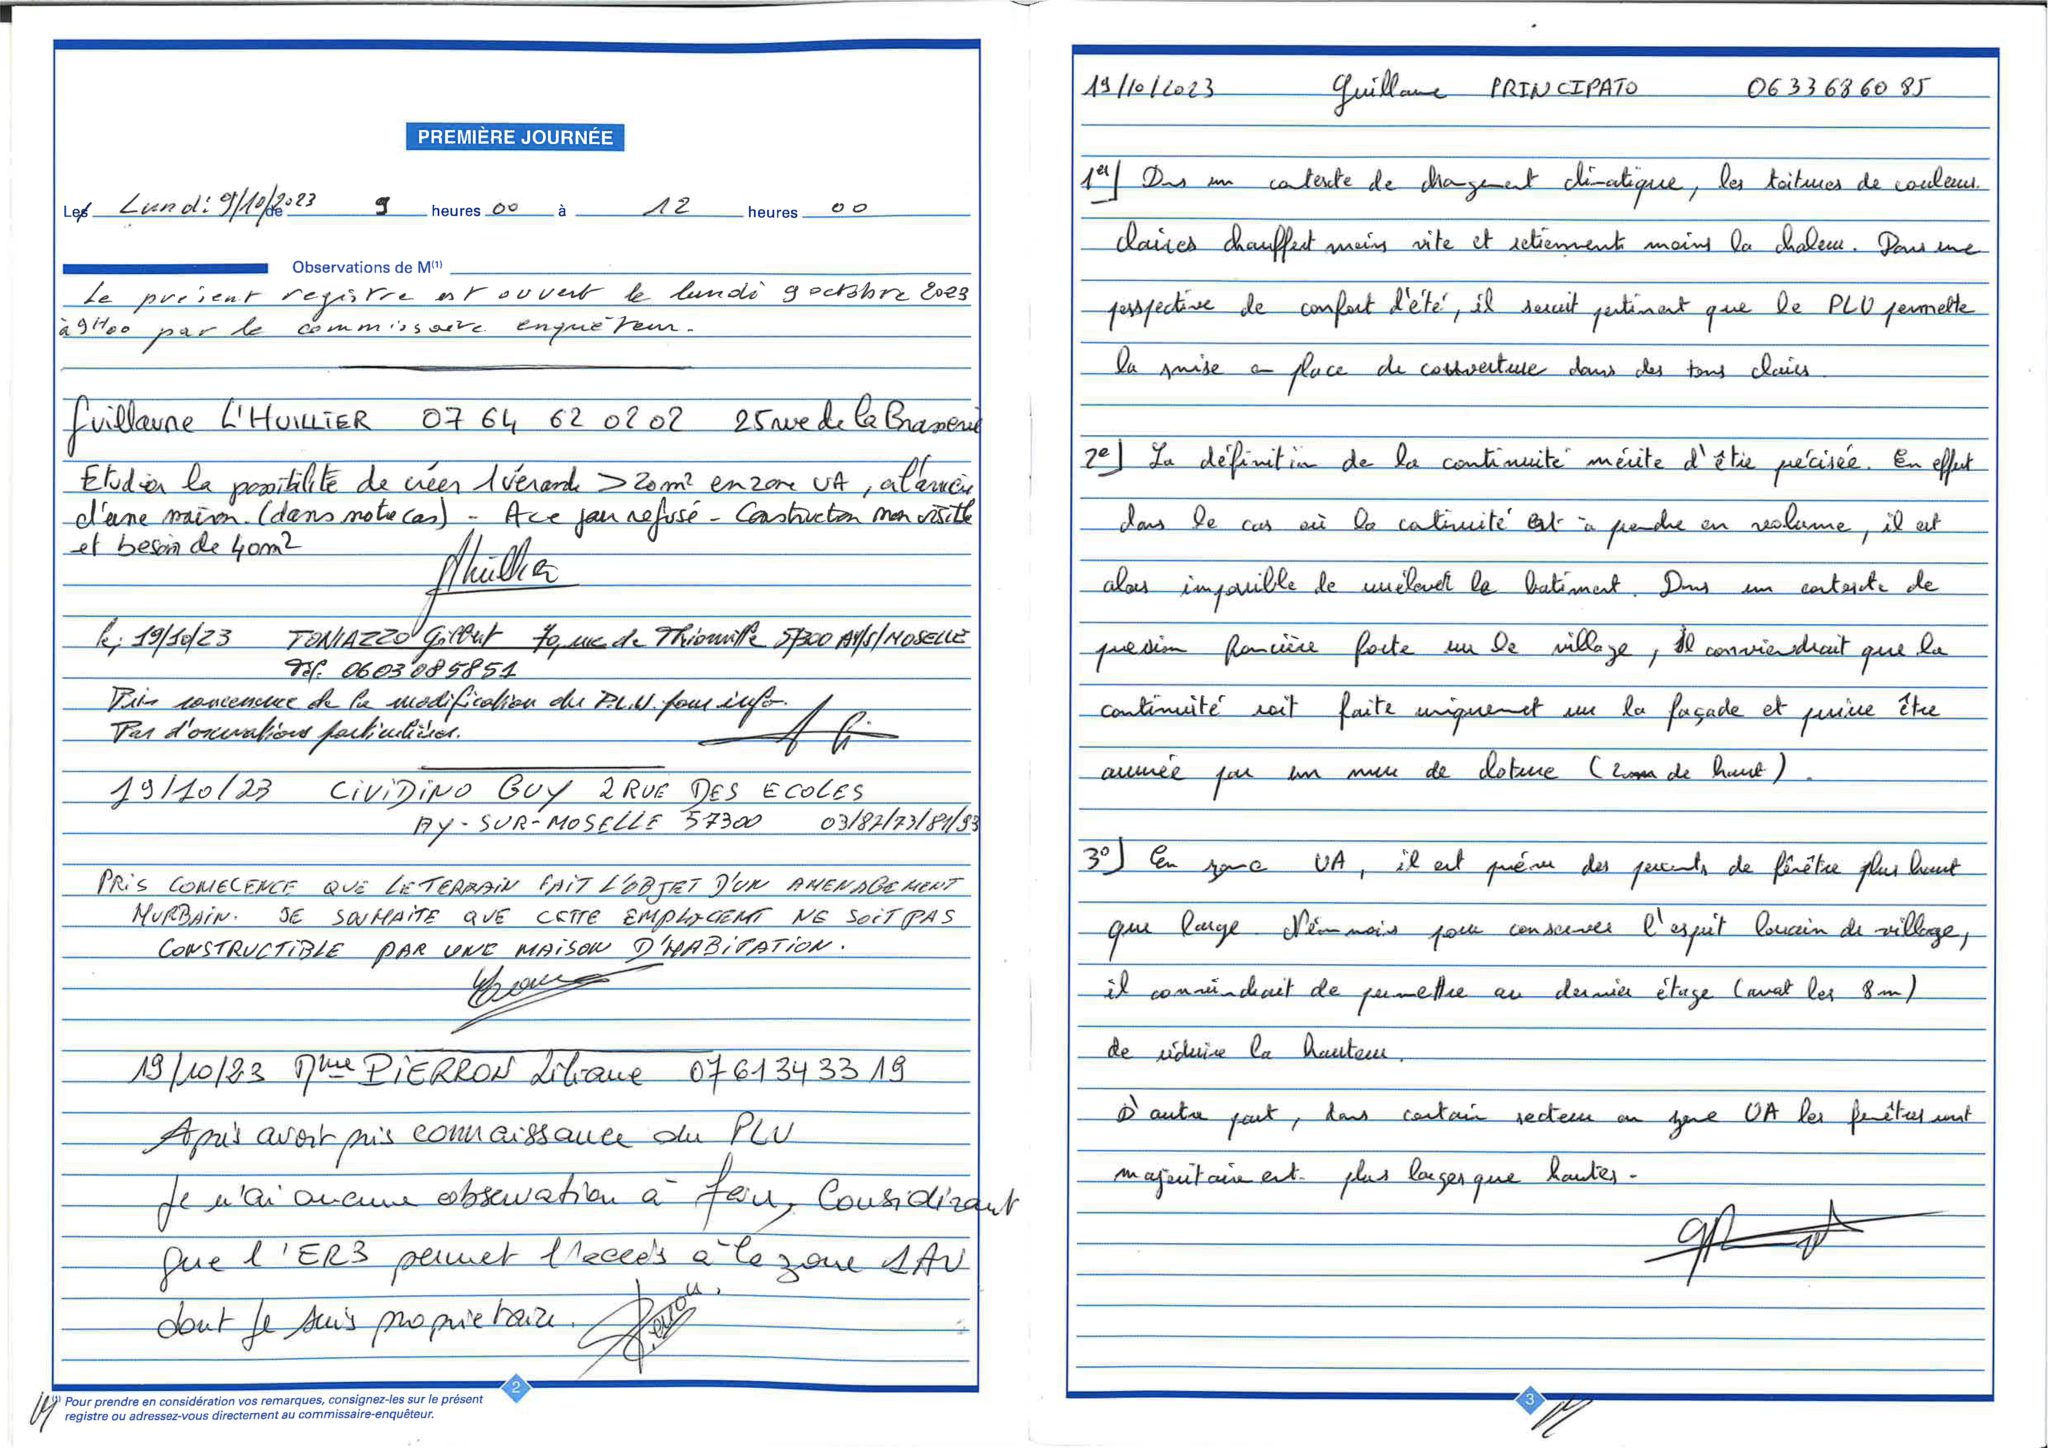 PREMIÈRE JOURNÉE
Les Lundi 9/10/2023 de 9 heures 00 à 12 heures 00
Observations de M(1)
Le présent registre est ouvert le lundi 9 octobre 2023
à 9H00 par le commissaire enquêteur.
Guillaume L'HUILLIER 07 64 62 02 02 25 rue de la Brasserie
Etudier la possibilité de créer 1 véranda > 20m² en zone UA, à l'arrière
d'une maison. (dans notre cas) - A ce jour refusé - Construction non visible
et besoin de 40m²
le 19/10/23 TONIAZZO Gilbert 70, rue de Thionville 57300 AY/S/MOSELLE
Tél. 0603085851
Pris connaissance de la modification du P.L.U. pour info.
Pas d'observations particulières.
19/10/23 CIVIDINO GUY 2 RUE DES ECOLES
AY-SUR-MOSELLE 57300 03/87/73/81/93
PRIS CONECENCE QUE LE TERRAIN FAIT L'OBJET D'UN AMENAGEMENT
MURBAIN. JE SOUHAITE QUE CETTE EMPLACEMENT NE SOIT PAS
CONSTRUCTIBLE PAR UNE MAISON D'HABITATION.
19/10/23 Mme PIERRON Liliane 07 61 34 33 19
Après avoir pris connaissance du PLU
Je n'ai aucune observation à faire, Considérant
que l'ER3 permet l'accès à la zone 1AU
dont je suis propriétaire.
2
(1) Pour prendre en considération vos remarques, consignez-les sur le présent
registre ou adressez-vous directement au commissaire-enquêteur.
19/10/2023 Guillaume PRINCIPATO 06 33 68 60 85
1er) Dans un contexte de changement climatique, les toitures de couleurs
claires chauffent moins vite et retiennent moins la chaleur. Dans une
perspective de confort d'été, il serait pertinent que le PLU permette
la mise en place de couverture dans des tons clairs.
2e) La définition de la continuité mérite d'être précisée. En effet
dans le cas où la continuité est à prendre en volume, il est
alors impossible de surélever le bâtiment. Dans un contexte de
pression foncière forte sur le village, il conviendrait que la
continuité soit faite uniquement sur la façade et puisse être
assurée par un mur de cloture (2m de haut).
3°) En zone UA, il est prévu des percements de fenêtre plus haut
que large. Néanmoins pour conserver l'esprit lorrain de village,
il conviendrait de permettre au dernier étage (avant les 8m)
de réduire la hauteur.
D'autre part, dans certain secteur en zone UA les fenêtres sont
majoritairement plus larges que hautes.
3